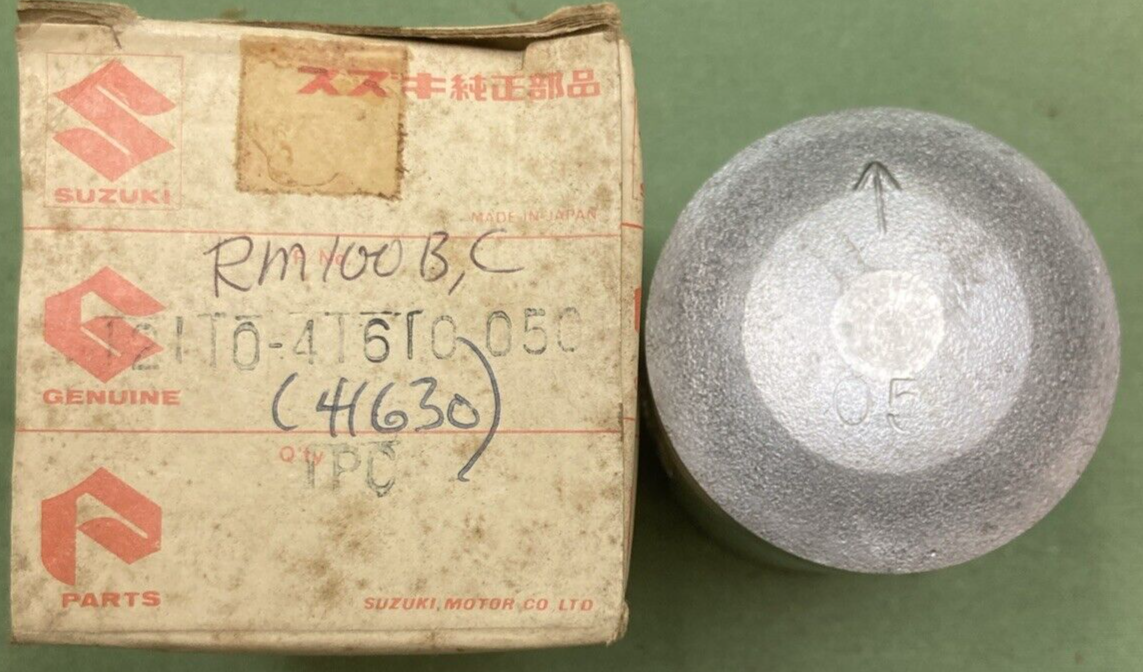 スズキ純正部品
SUZUKI
MADE IN JAPAN
P. No.
RM100 B, C
12110-41610-050
GENUINE
(41630)
Q'ty
1PC
PARTS
SUZUKI MOTOR CO. LTD
↑
05